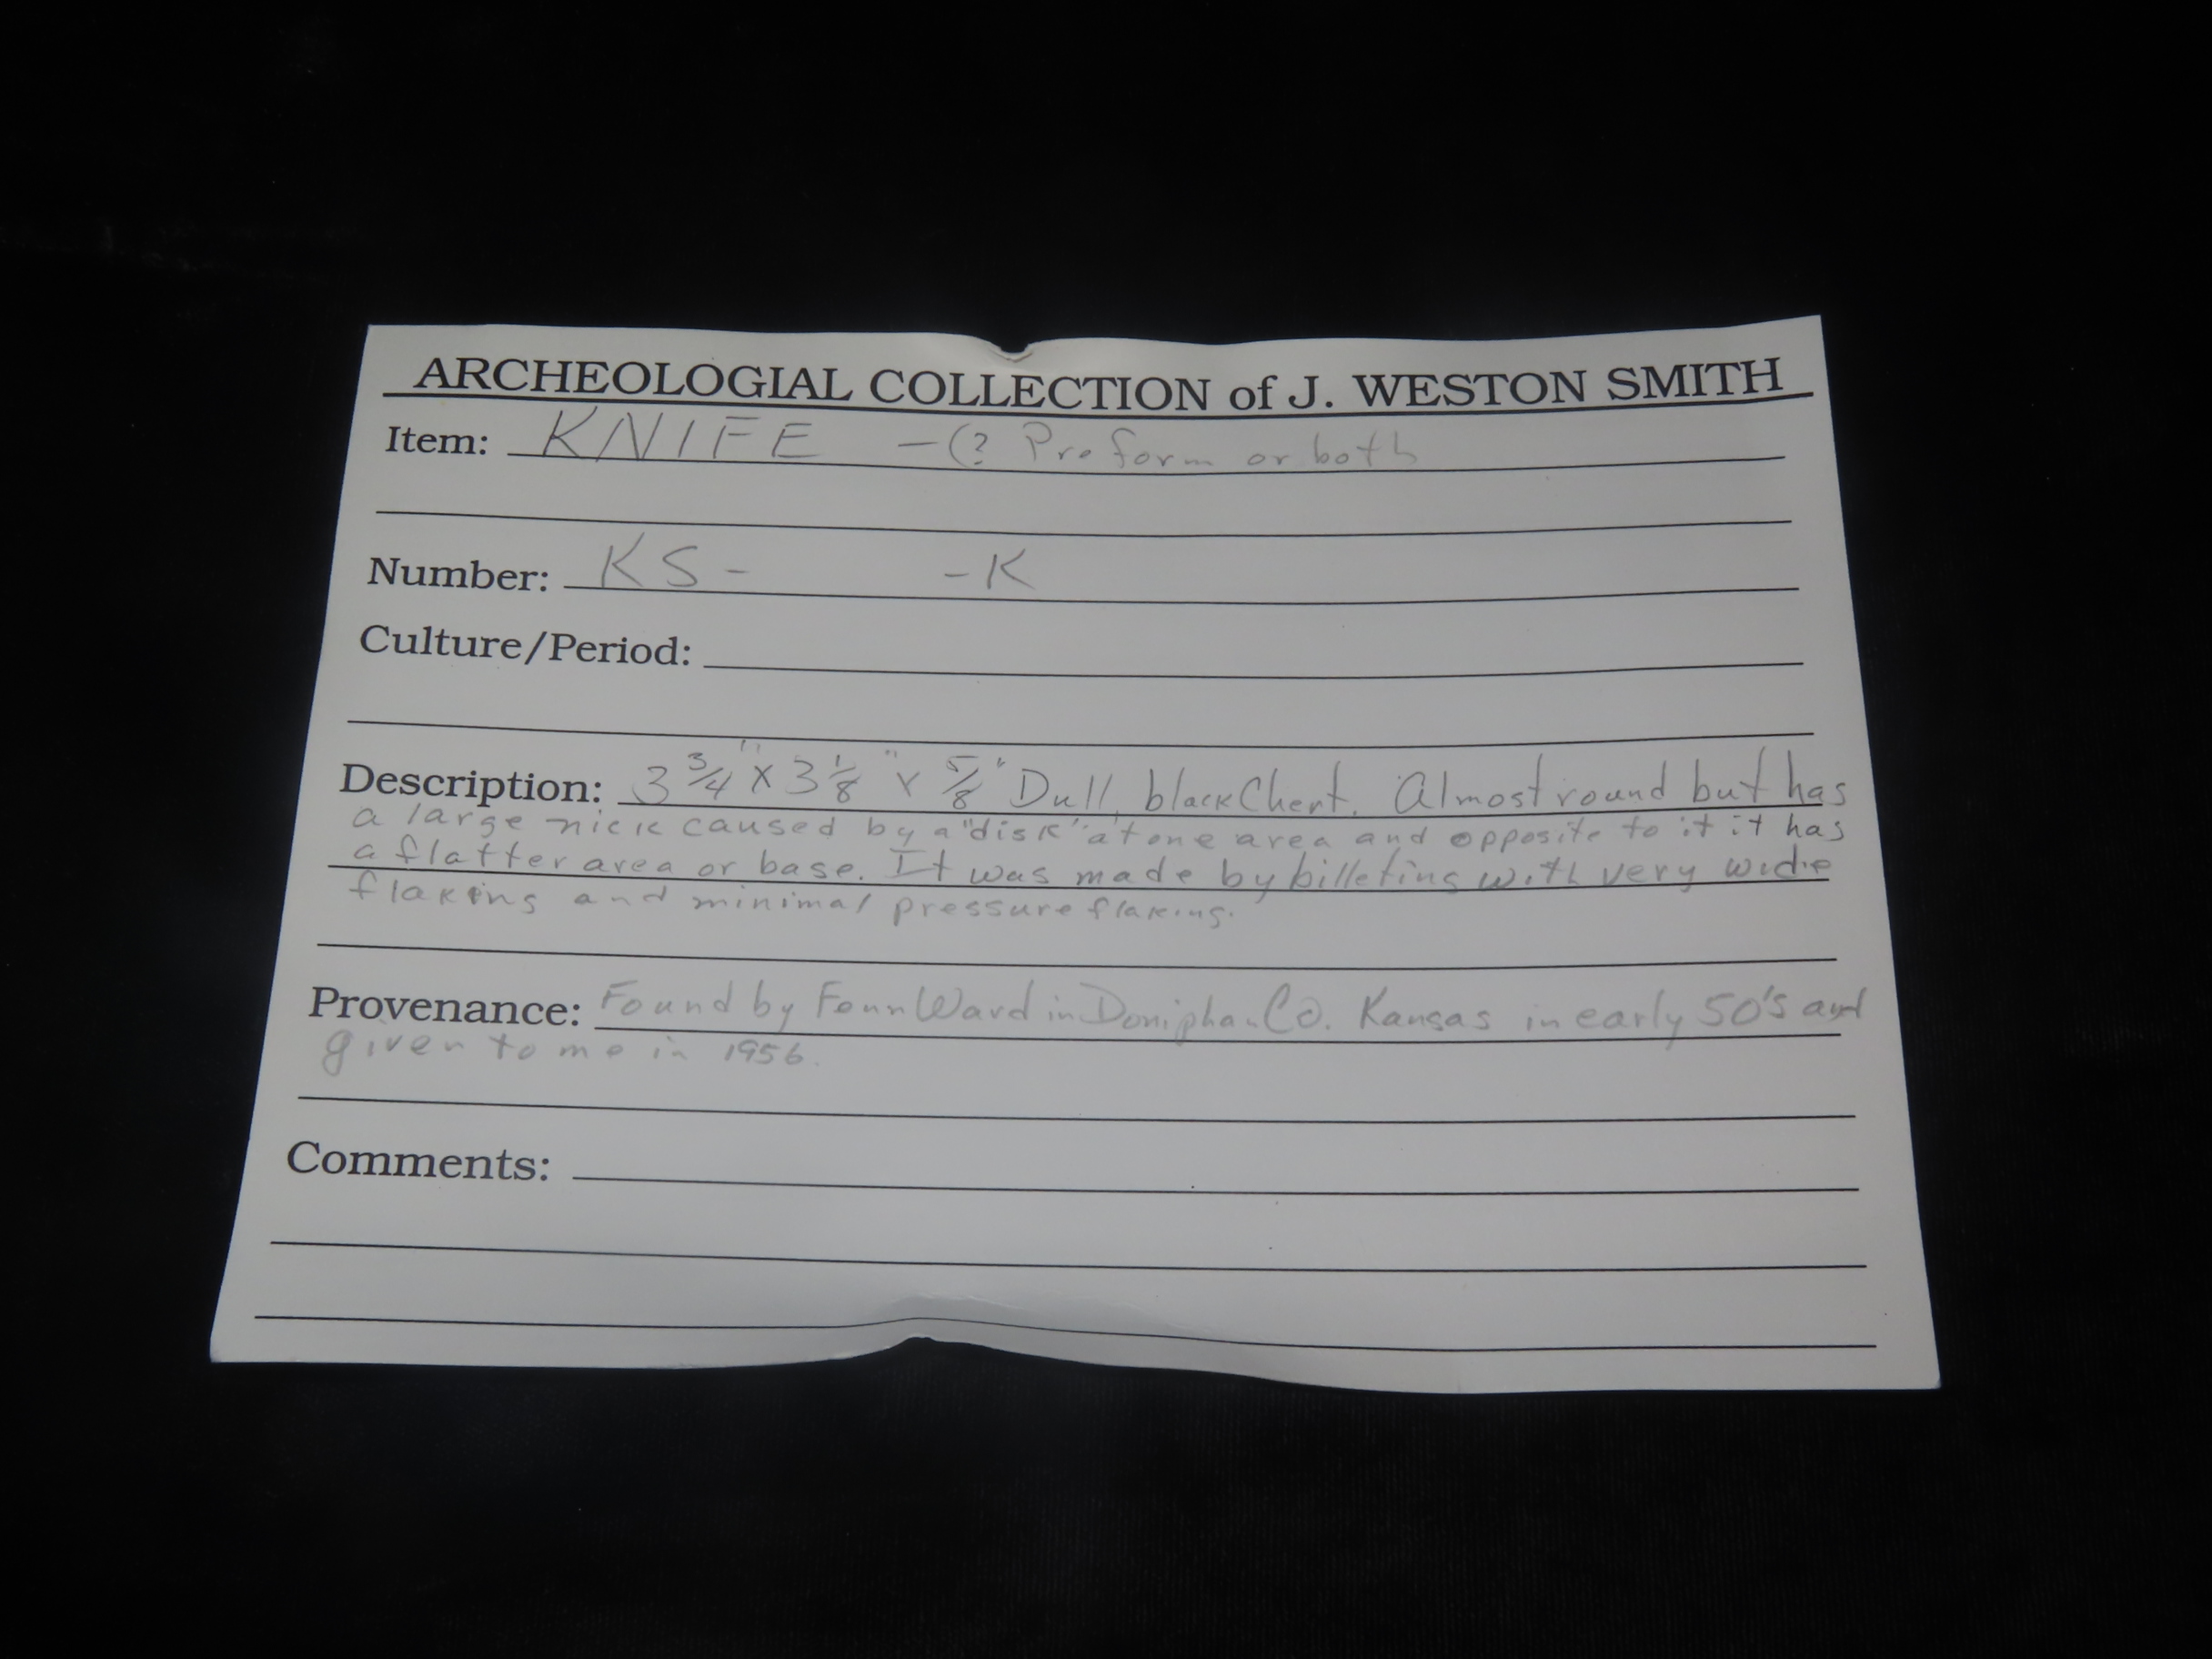 ARCHEOLOGIAL COLLECTION of J. WESTON SMITH
Item: KNIFE - (? Preform or both
Number: KS- -K
Culture/Period:
Description: 3 3/4" x 3 1/8" x 5/8" Dull, black Chert. Almost round but has
a large nick caused by a "disk" at one area and opposite to it it has
a flatter area or base. It was made by billeting with very wide
flaking and minimal pressure flaking.
Provenance: Found by Fenn Ward in Doniphan Co. Kansas in early 50's and
given to me in 1956.
Comments: